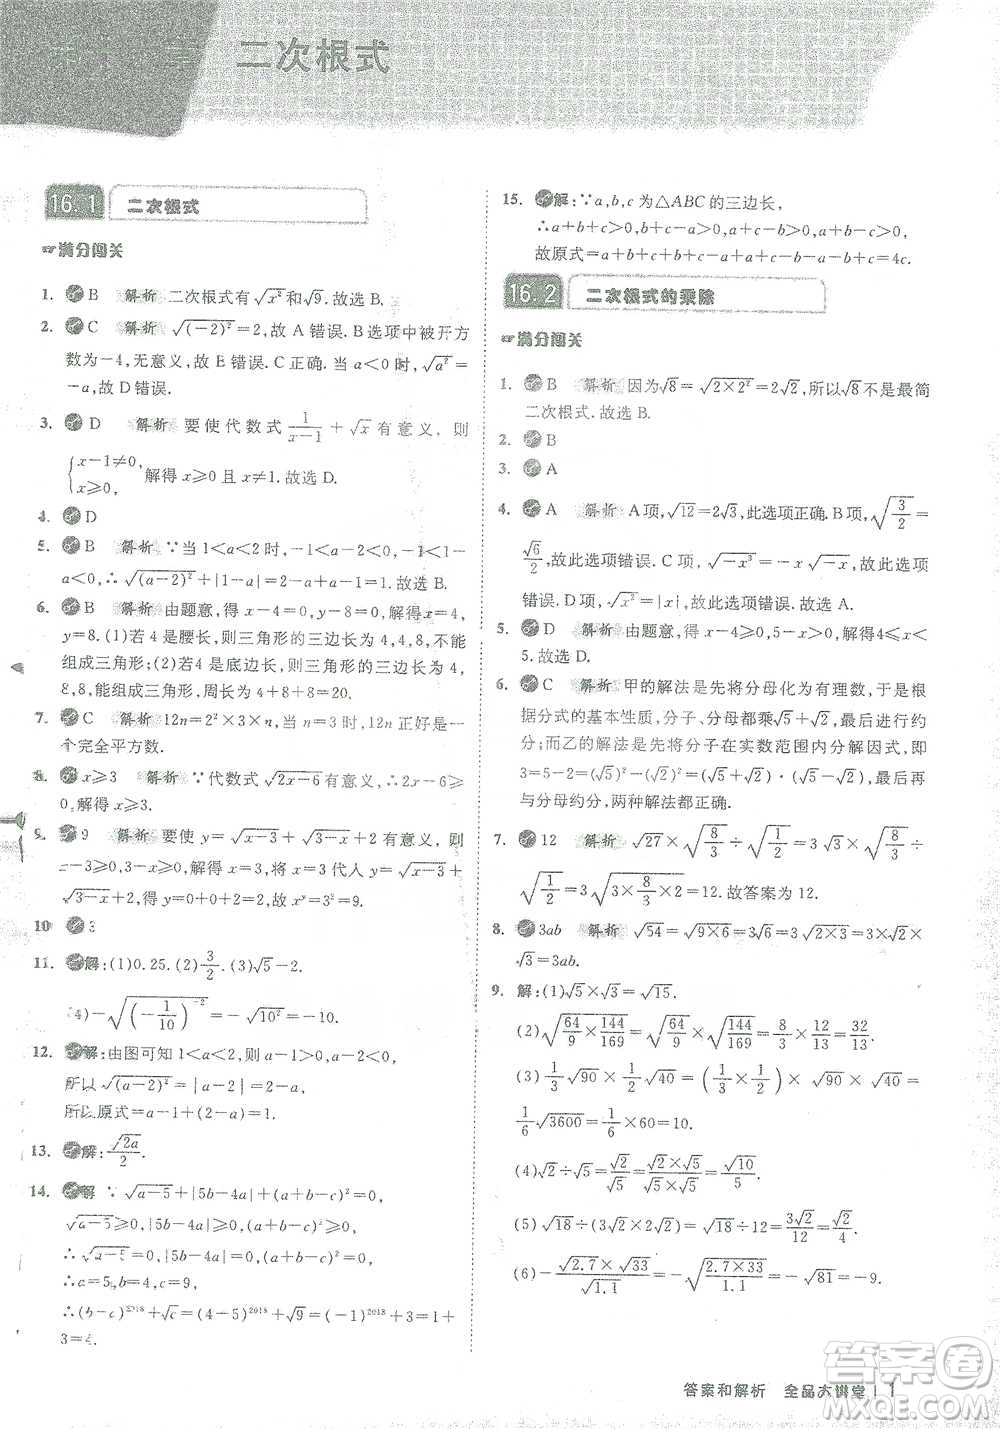 二次根式
16.1 二次根式
满分闯关
1. B 解析 二次根式有√x²和√9.故选 B.
2. C 解析 √(-2)²=2,故 A 错误. B 选项中被开方
数为-4,无意义,故 B 错误. C 正确. 当 a<0 时,√a²=
-a,故 D 错误.
3. D 解析 要使代数式 1/(x-1) + √x 有意义, 则
{x-1≠0, x⩾0, 解得 x⩾0 且 x≠1.故选 D.
4. D
5. B 解析 ∵当 1<a<2 时,
a<0.∴√(a-2)²+|1-a|=2-a+a-1=1.故选 B.
6. B 解析 由题意,得 x-4=0,y-8=0,解得 x=4,
y=8.(1)若 4 是腰长,则三角形的三边长为 4,4,8,不能
组成三角形;(2)若4是底边长,则三角形的三边长为4,
8,8,能组成三角形,周长为 4+8+8=20.
7. C 解析 12n=2²×3×n,当 n=3 时,12n 正好是一
个完全平方数.
8. x⩾3 解析 ∵代数式√(2x-6)有意义,∴2x-6⩾
0,解得 x⩾3.
9. 9 解析 要使 y=√(x-3)+√(3-x)+2 有意义,则
x-3⩾0,3-x⩾0,解得 x=3,将 x=3 代入 y=√(x-3)+
√(3-x)+2,得 y=0+0+2=2,故 xʸ=3²=9.
10. 3
11. 解:(1)0.25.(2)3/2.(3)√5-2.
(4)-√(-1/10)⁻²=-√10²=-10.
12. 解:由图可知 1<a<2,则 a-1>0,a-2<0,
所以√(a-2)²=|a-2|=2-a,
所以原式=a-1+(2-a)=1.
13. 解:√2a/2.
14. 解 ∵√(a-5)+|5b-4a|+√c²=0,
√(a-5)⩾0,|5b-4a|⩾0,√c²⩾0,
∴√(a-5)=0,|5b-4a|=0,√c²=0,
∴c=9.
∴(b-a)²⁰¹⁸+√c=(4-5)²⁰¹⁸+√9=(-1)²⁰¹⁸+
3=4.
15. 解:∵a,b,c为△ABC的三边长,
∴a+b+c>0,b+c-a>0,
故原式=a+b+c+b+c-a+
16.2 二次根式的乘除
满分闯关
1. B 解析 因为√8=√(2×2²)=2√2,所以√8不是最简
二次根式.故选 B.
2. B
3. A
4. A 解析 A 项,√12=2√3,此选项正确. B 项,√(3/2)=
√6/2,故此选项错误. C 项,
错误. D 项,√x²=|x|,故此选项错误.故选 A.
5. D 解析 由题意,得 x-4⩾0,5-x>0,解得4⩽x<
5.故选 D.
6. C 解析 甲的解法是先将分母化为有理数,然后根
据分式的基本性质,分子、分母都乘√5-√2,最后进行约
分;而乙的解法是先将分子在实数范围内分解因式,即
3=5-2=(√5)²-(√2)²=(√5+√2)(√5-√2),然后再
与分母约分,两种解法都正确.
7. 12 解析 √27×√(8/3)÷√(1/2)=3√3×√(8/3)÷
√(1/2)=3√(3×8/3×2)=12.故答案为 12.
8. 3ab 解析 √54=√(9×6)=3√(2×3)=3×√2×
√3=3ab.
9. 解:(1)√5×√3=√15.
(2)√(64/9×144/169)=√(64/9)×√(144/169)=8/3×12/13=32/13.
(3)1/3√90×1/2√40=(1/3×1/2)×√(90×40)=
1/6√3600=1/6×60=10.
(4)√2÷√5=√2/√5=(√2×√5)/(√5×√5)=√10/5.
(5)√18÷(3√16)=√18÷12=3√2/12=√2/4.
(6)-(√2.7×√33)/√1.1=-√(2.7×33/1.1)=-√81=-9.
答案和解析 全品大讲堂 | 1
答案卷
MXQE.COM